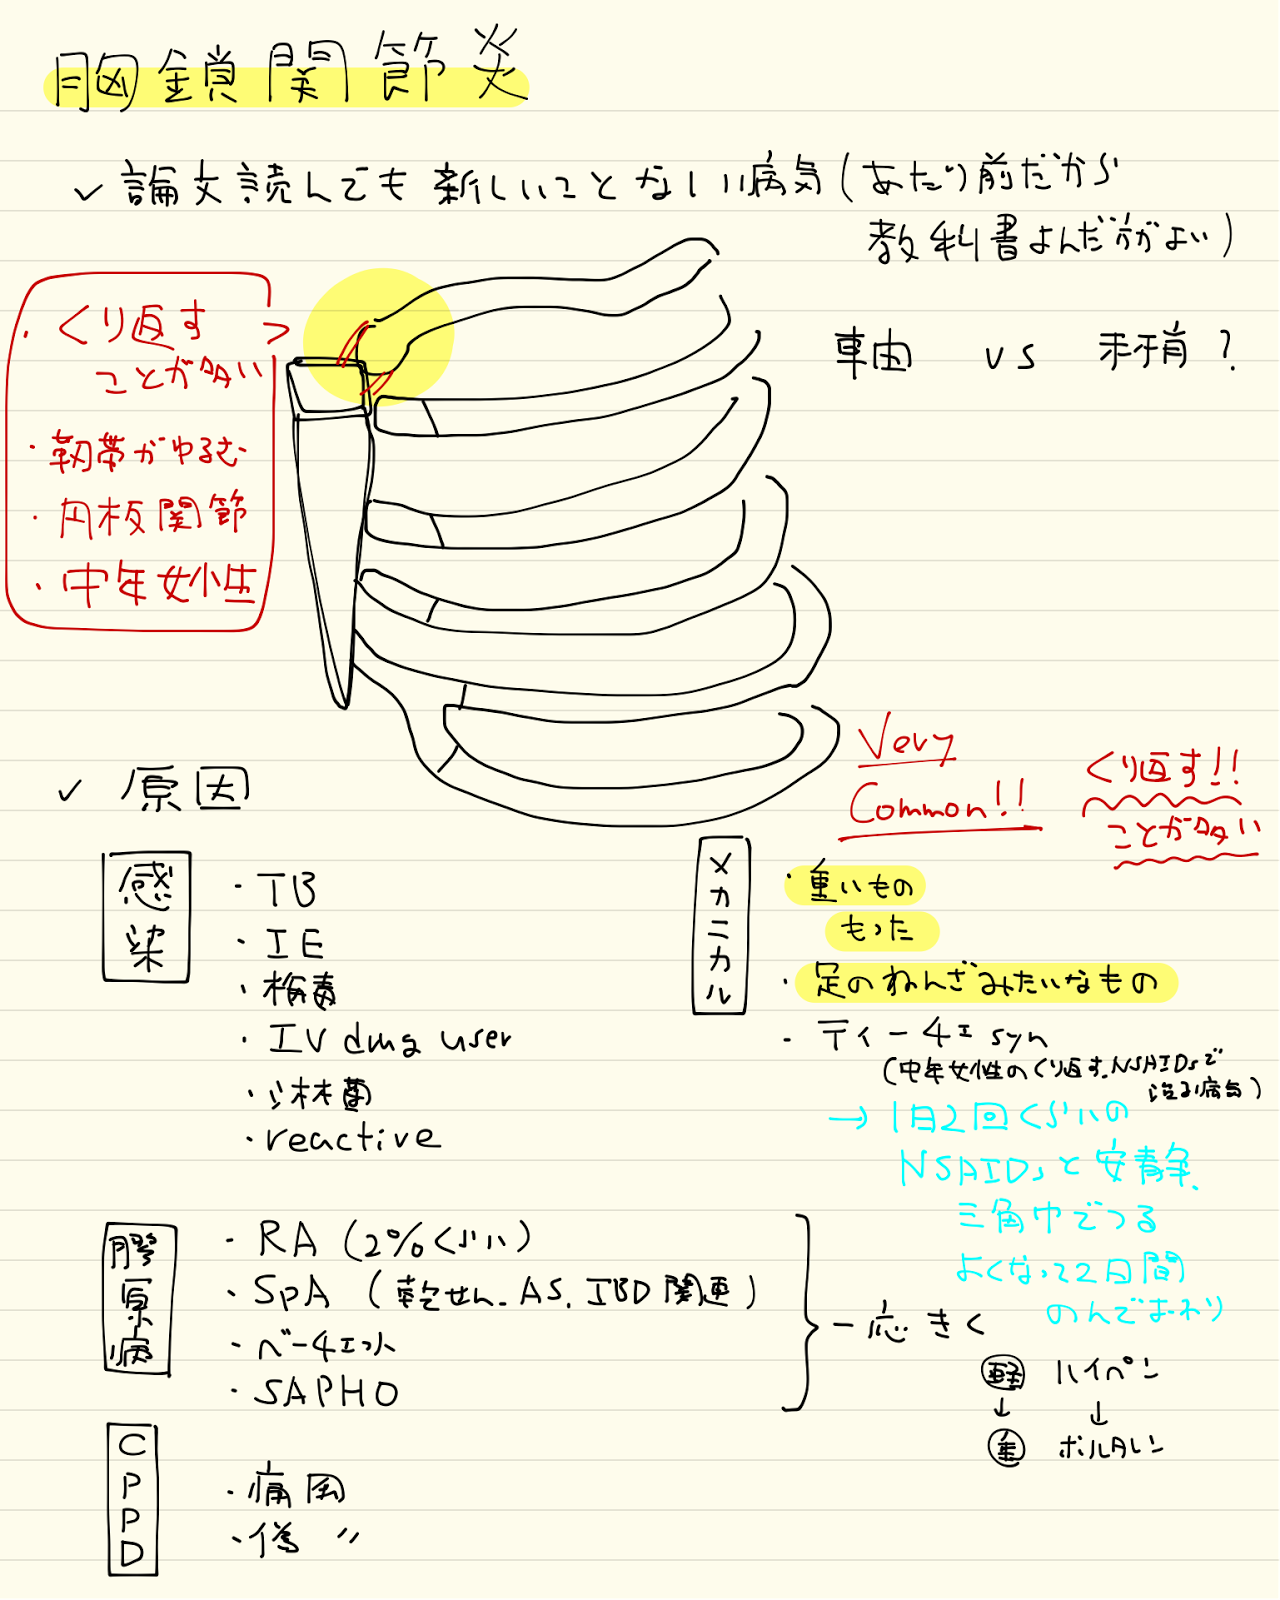 胸鎖関節炎
✓ 論文読んでも新しいことない病気(あたり前だから
教科書よんだ方がよい)
・くり返す
ことが多い
・靭帯がゆるむ
・円板関節
・中年女性
車由 vs 末梢?
✓ 原因
Very
Common!!
くり返す!!
ことが多い
感染
・TB
・IE
・梅毒
・IV drug user
・淋菌
・reactive
メカニカル
・重いもの
もった
・足のねんざみたいなもの
・ティーチェ syn
(中年女性のくり返す、NSAIDsで
治る病気)
→ 1日2回くらいの
NSAIDsと安静、
三角巾でつる
よくなって2日間
のんでおわり
膠原病
・RA (2%くらい)
・SpA (乾せん、AS、IBD関連)
・ベーチェット
・SAPHO
一応きく
軽 ハイペン
↓ ↓
重 ボルタレン
CPPD
・痛風
・偽 〃